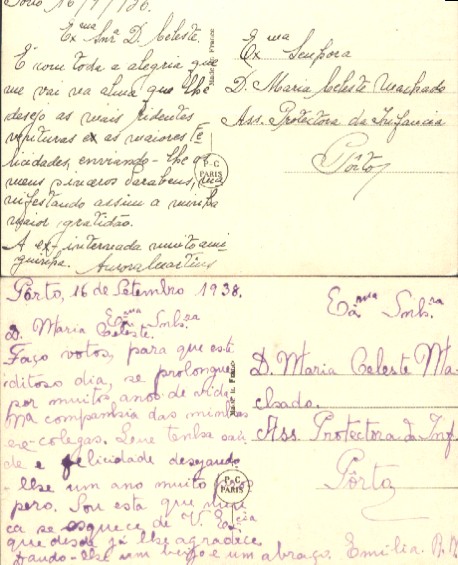 Porto 16/9/936.
Exma Snrª D. Celeste.
É com toda a alegria que
me vai na alma que lhe
desejo as mais ridentes
venturas e as maiores Fe
licidades, enviando-lhe os
meus sinceros parabens, ma
nifestando assim a minha
maior gratidão.
A ex-internada muito ami
guinha. Aurora Martins
Made in France
P·C
PARIS
Exma
Ex Senhora
D. Maria Celeste Machado
Ass. Protectora da Infancia
Pôrto
Pôrto, 16 de Setembro 1938.
Exma Snhra
D. Maria Celeste.
Faço votos, para que este
ditoso dia, se prolongue
por muitos anos de vida
na companhia das minhas
ex-colegas. Que tenha saú
de e felicidade desejando-
-lhe um ano muito
pero. Sou esta que nun
ca se esquece de V. Excia
que desde já lhe agradece
Dando-lhe um beijo e um abraço. Emilia. R.
Made in France
P·C
PARIS
Exma Snhra
D. Maria Celeste Ma-
chado.
Ass. Protectora da Inf.
Pôrto